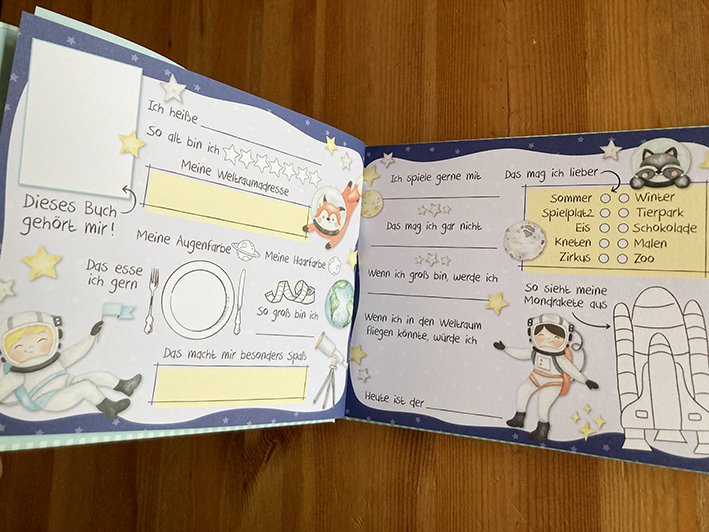 Ich heiße
So alt bin ich
Meine Weltraumadresse
Dieses Buch
gehört mir!
Meine Augenfarbe
Meine Haarfarbe
Das esse
ich gern
So groß bin ich
Das macht mir besonders Spaß
Ich spiele gerne mit
Das mag ich gar nicht
Wenn ich groß bin, werde ich
Wenn ich in den Weltraum
fliegen könnte, würde ich
Heute ist der
Das mag ich lieber
Sommer Winter
Spielplatz Tierpark
Eis Schokolade
Kneten Malen
Zirkus Zoo
So sieht meine
Mondrakete aus